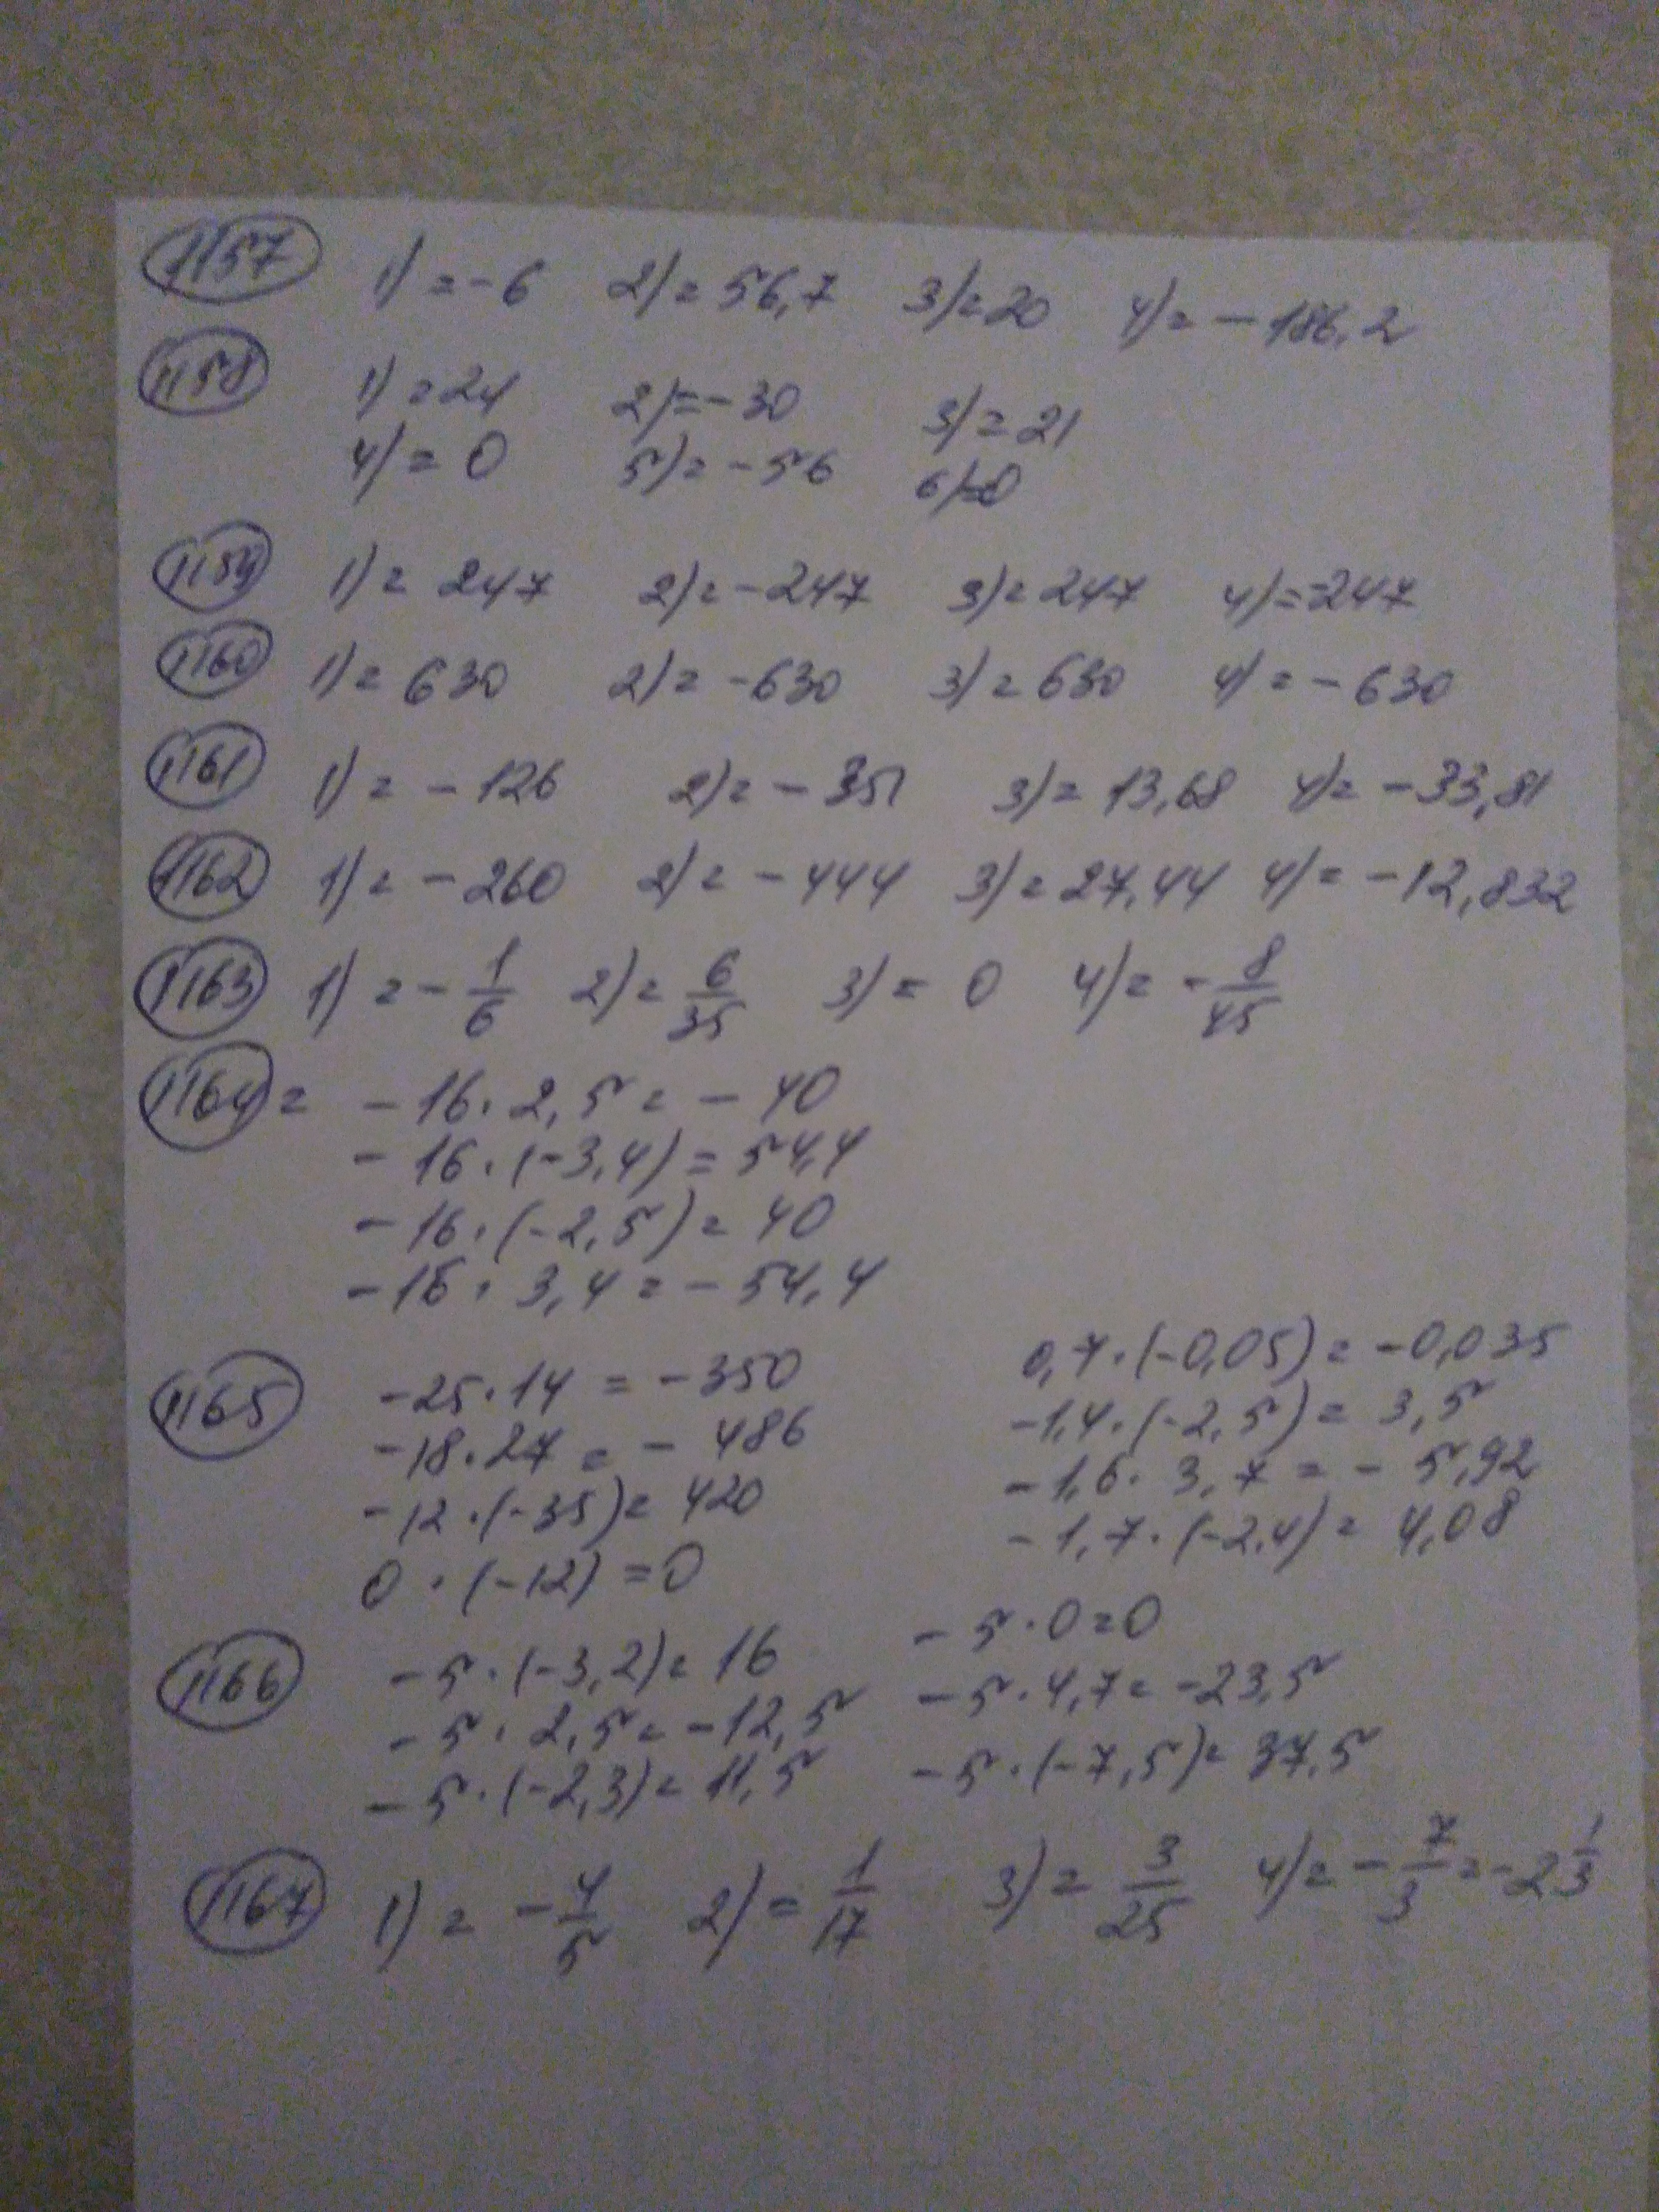 1157 1) = -6 2) = 56,7 3) = 20 4) = - 186,2
1158 1) = 24 2) = - 30 3) = 21
4) = 0 5) = - 56 6) = 0
1159 1) = 247 2) = - 247 3) = 247 4) = -247
1160 1) = 630 2) = - 630 3) = 630 4) = - 630
1161 1) = - 126 2) = - 351 3) = 13,68 4) = - 33,81
1162 1) = - 260 2) = - 444 3) = 27,44 4) = - 12,832
1163 1) = - 1/6 2) = 6/35 3) = 0 4) = - 8/45
1164 = - 16 · 2,5 = - 40
- 16 · (-3,4) = 54,4
- 16 · (-2,5) = 40
- 16 · 3,4 = - 54,4
1165 -25 · 14 = - 350 0,7 · (-0,05) = - 0,035
- 18 · 27 = - 486 -1,4 · (-2,5) = 3,5
- 12 · (-35) = 420 - 1,6 · 3,7 = - 5,92
0 · (-12) = 0 - 1,7 · (-2,4) = 4,08
1166 - 5 · (-3,2) = 16 - 5 · 0 = 0
- 5 · 2,5 = - 12,5 - 5 · 4,7 = - 23,5
- 5 · (-2,3) = 11,5 - 5 · (-7,5) = 37,5
1167 1) = - 4/5 2) = 1/17 3) = 3/25 4) = - 7/3 = - 2 1/3